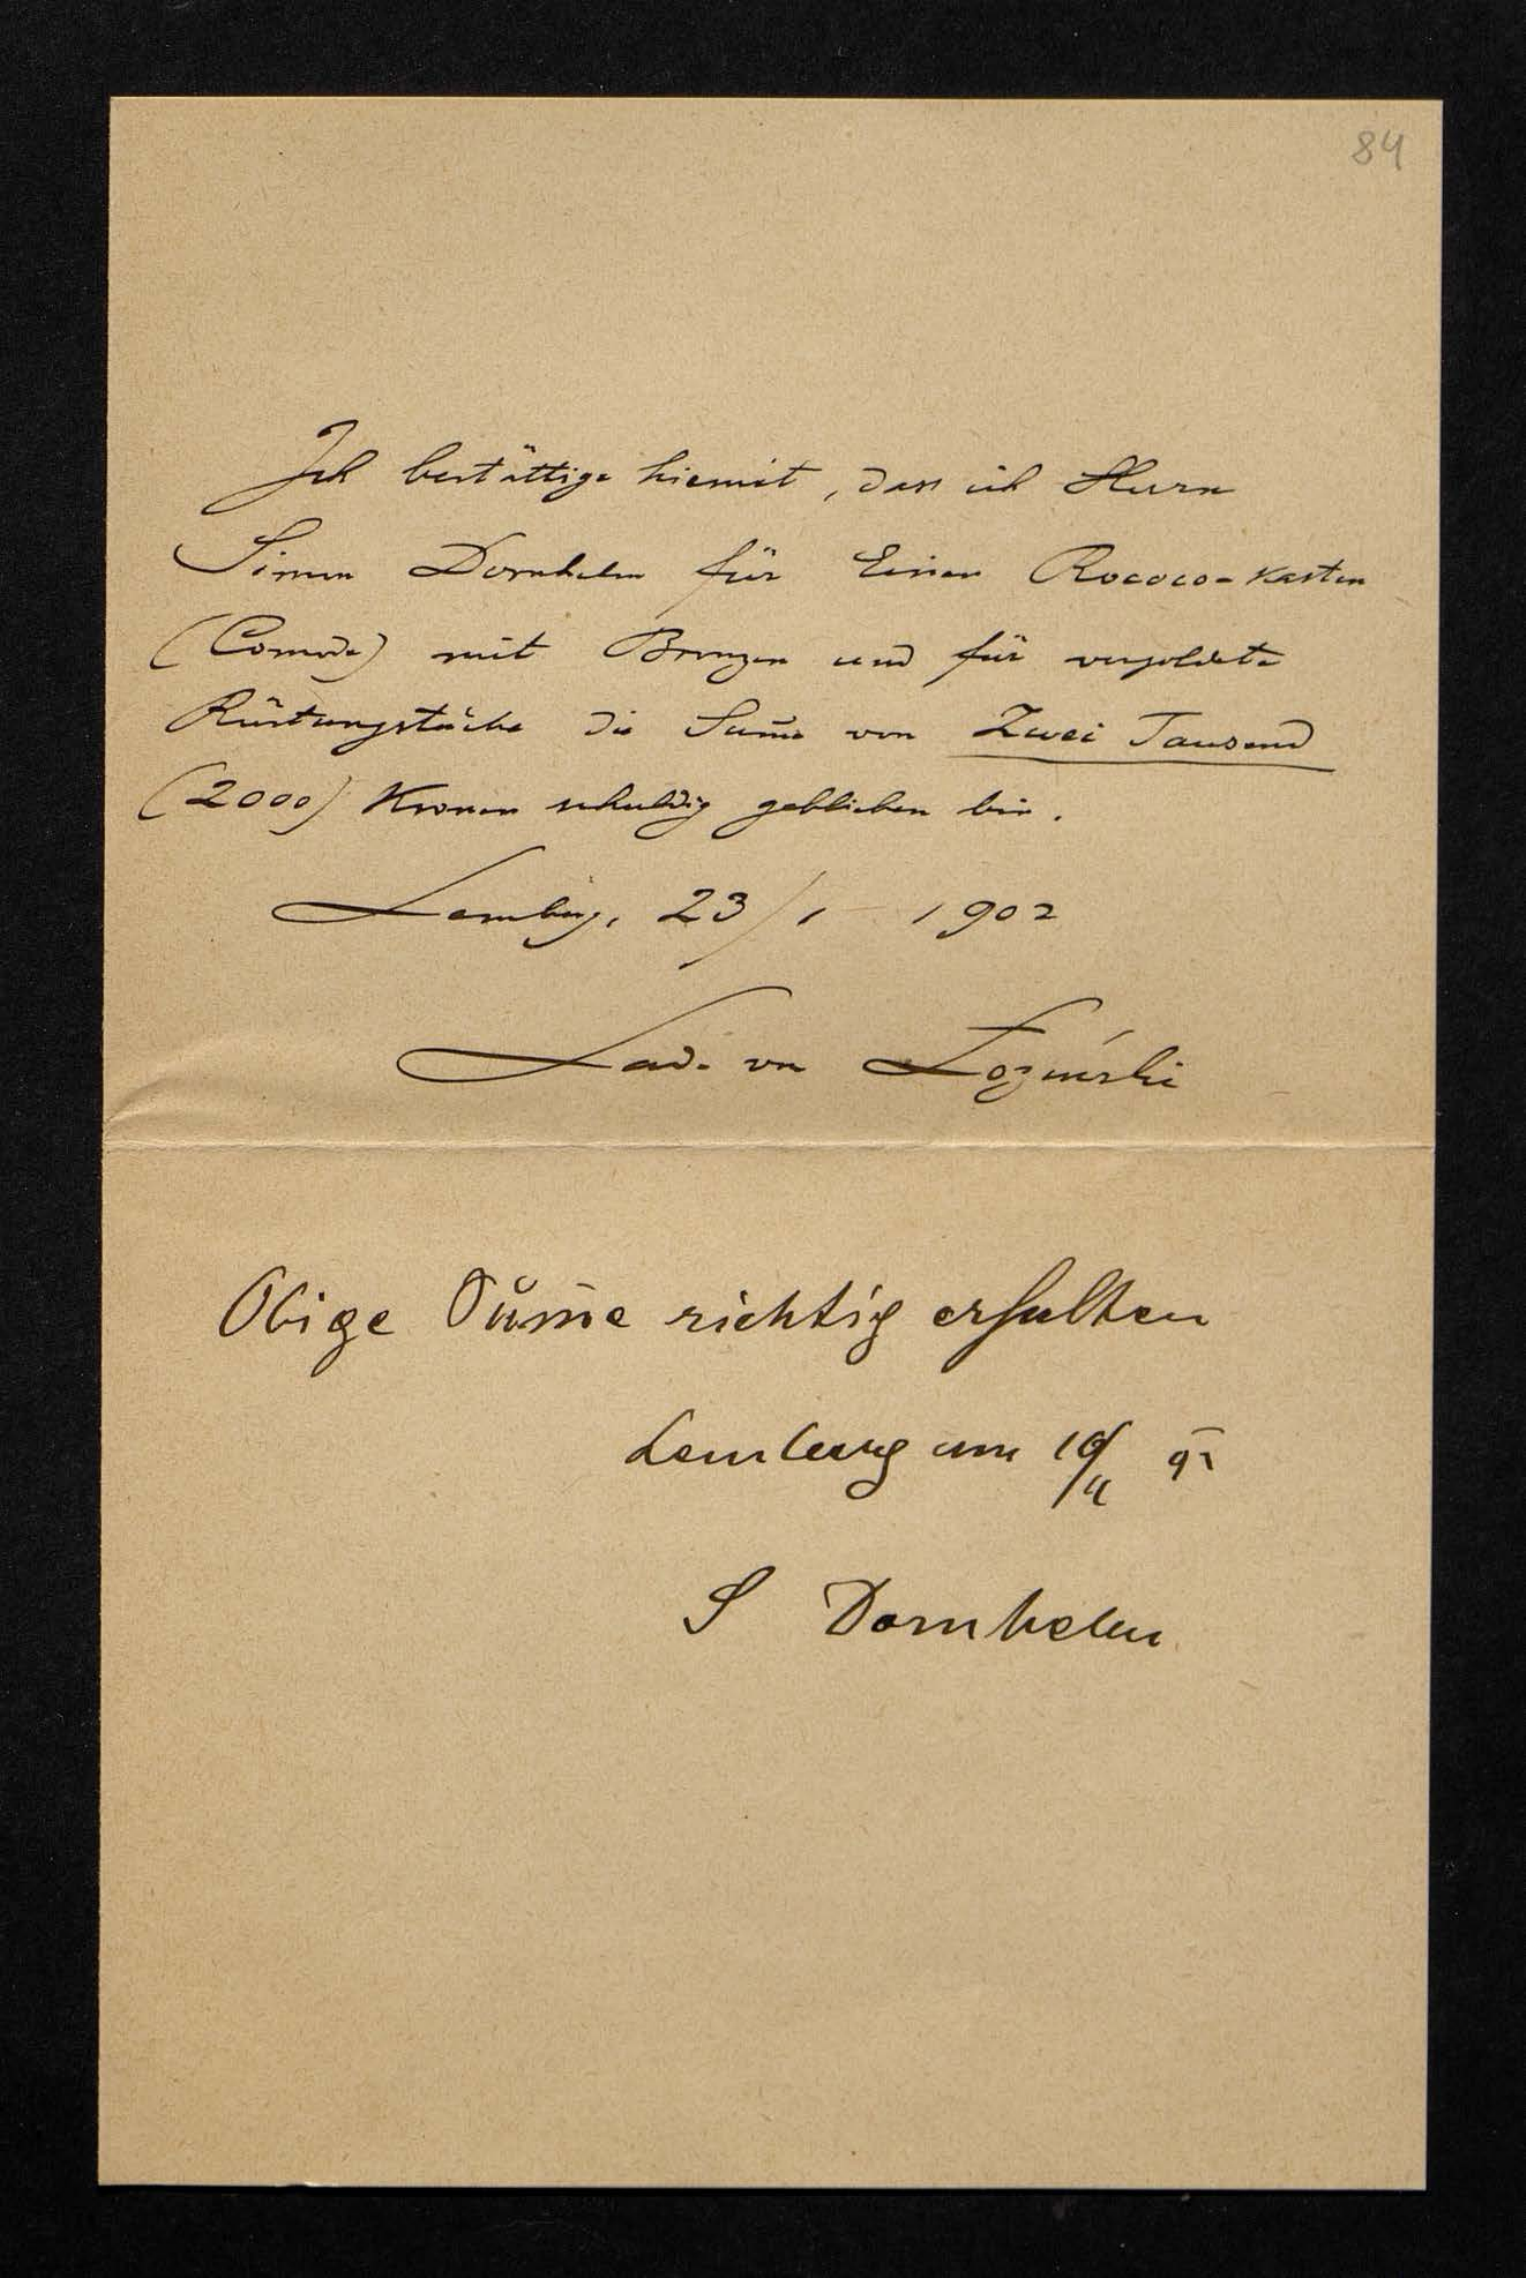 84
Ich bestättige hiemit, dass ich Herrn
Simon Dornhelm für Einen Rococo-Kasten
(Comode) mit Bronzen und für vergoldete
Rüstungstücke die Sum̄e von Zwei Tausend
(2000) Kronen schuldig geblieben bin.
Lemberg, 23/1 1902
Lad. von Łoziński
Obige Sum̄e richtig erhalten
Lemberg am
S Dornhelm